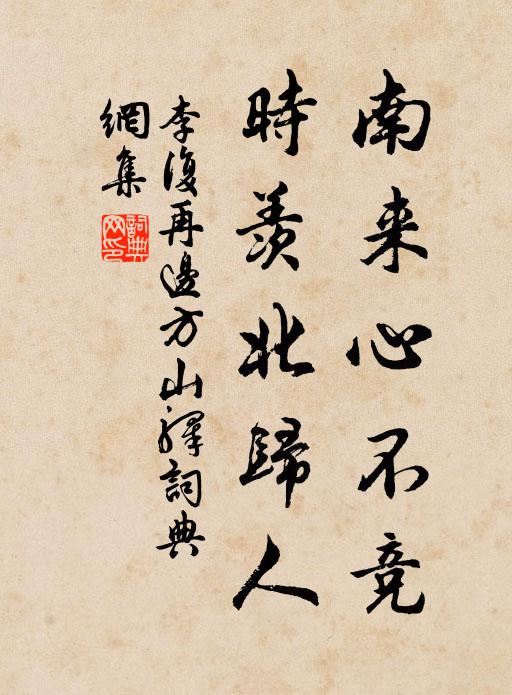 南来心不竞
時羨北歸人
李復再邊方山驛詞典
網集
詞典
网印